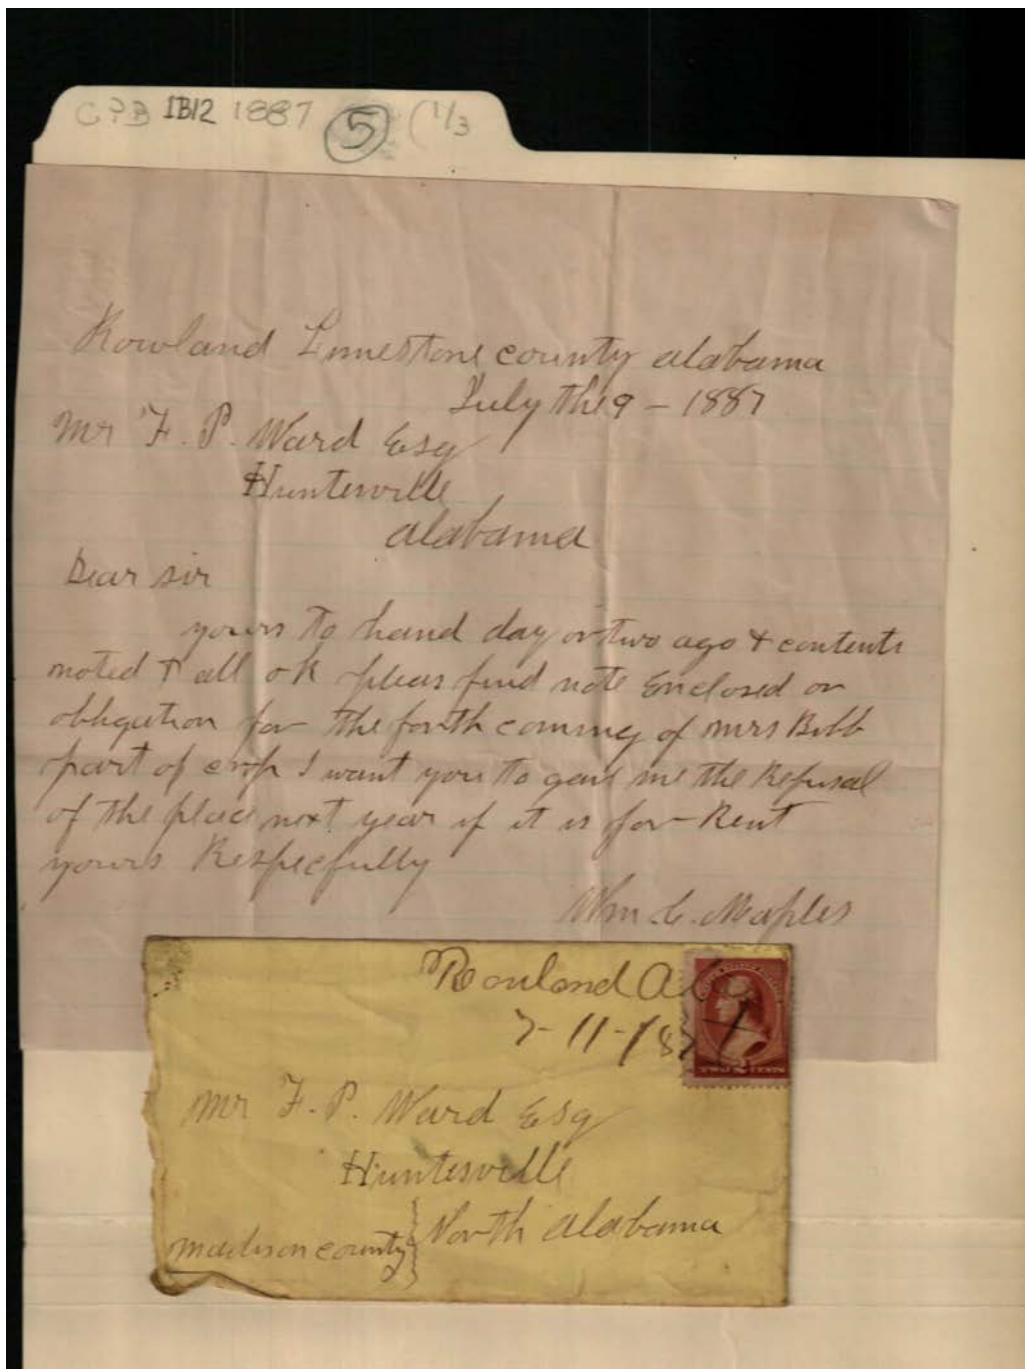 CPB IB12 1887 5 (1/3
Rowland Limestone county alabama
July the 9 - 1887
Mr F. P. Ward Esq
Huntesville
alabama
Dear sir
yours to hand day or two ago & contents
noted & all ok pleas find note Enclosed or
obligation for the forth coming of mrs Bibb
part of crop I want you to gave me the Refusal
of the place next year if it is for Rent
yours Respecfully
Wm. C. Maples
Rowland Ala
7-11-187
TWO 2 CENTS
Mr F. P. Ward Esq
Huntesville
madison county } North alabama